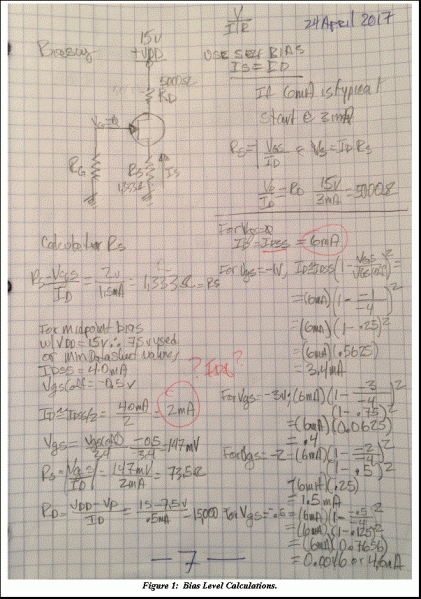 V
I | R
24 April 2017
Biasing
15V
+VDD
500Ω
RD
VG=0
RG
RS
1333Ω
IS
USE SELF BIAS
IS = ID
If 6mA is typical
start @ 3mA
RS = |VGS/ID| VS = ID RS
VD/ID = RD 15V/3mA = 5000Ω
Calculate for RS
RS = VGS/ID = 2V/1.5mA = 1,333Ω = RS
For midpoint bias
w/ VDD = 15V ∴ 7.5V used
or min Datasheet values,
IDSS = 4.0mA
VGS(off) = -0.5V
ID ≅ IDSS/2 = 4.0mA/2 = 2mA
VGS = VGS(off)/3.4 = -0.5/3.4 = -147mV
RS = |VGS/ID| = 147mV/2mA = 73.5Ω
RD = VDD-VD/ID = 15-7.5V/.5mA = 15,000
? IDQ?
For VGS=0
ID = IDSS = 6mA
For VGS = -1V, ID ≅ IDSS(1 - VGS/VGS(off))² =
= (6mA)(1 - -1/-4)²
= (6mA)(1-.25)²
= (6mA)(.5625)
= 3.4mA
For VGS = -3V: (6mA)(1 - -3/-4)²
(1-.75)²
= (6mA)(0.0625)
= .4
For VGS = -2 = (6mA)(1 - -2/-4)²
(1-.5)²
(6mA)(.25)
= 1.5mA
For VGS = -.5 = (6mA)(1 - -.5/-4)²
= (6mA)(1-.125)²
= (6mA)(0.7656)
= 0.0046 or 4.6mA
— 7 —
Figure 1: Bias Level Calculations.